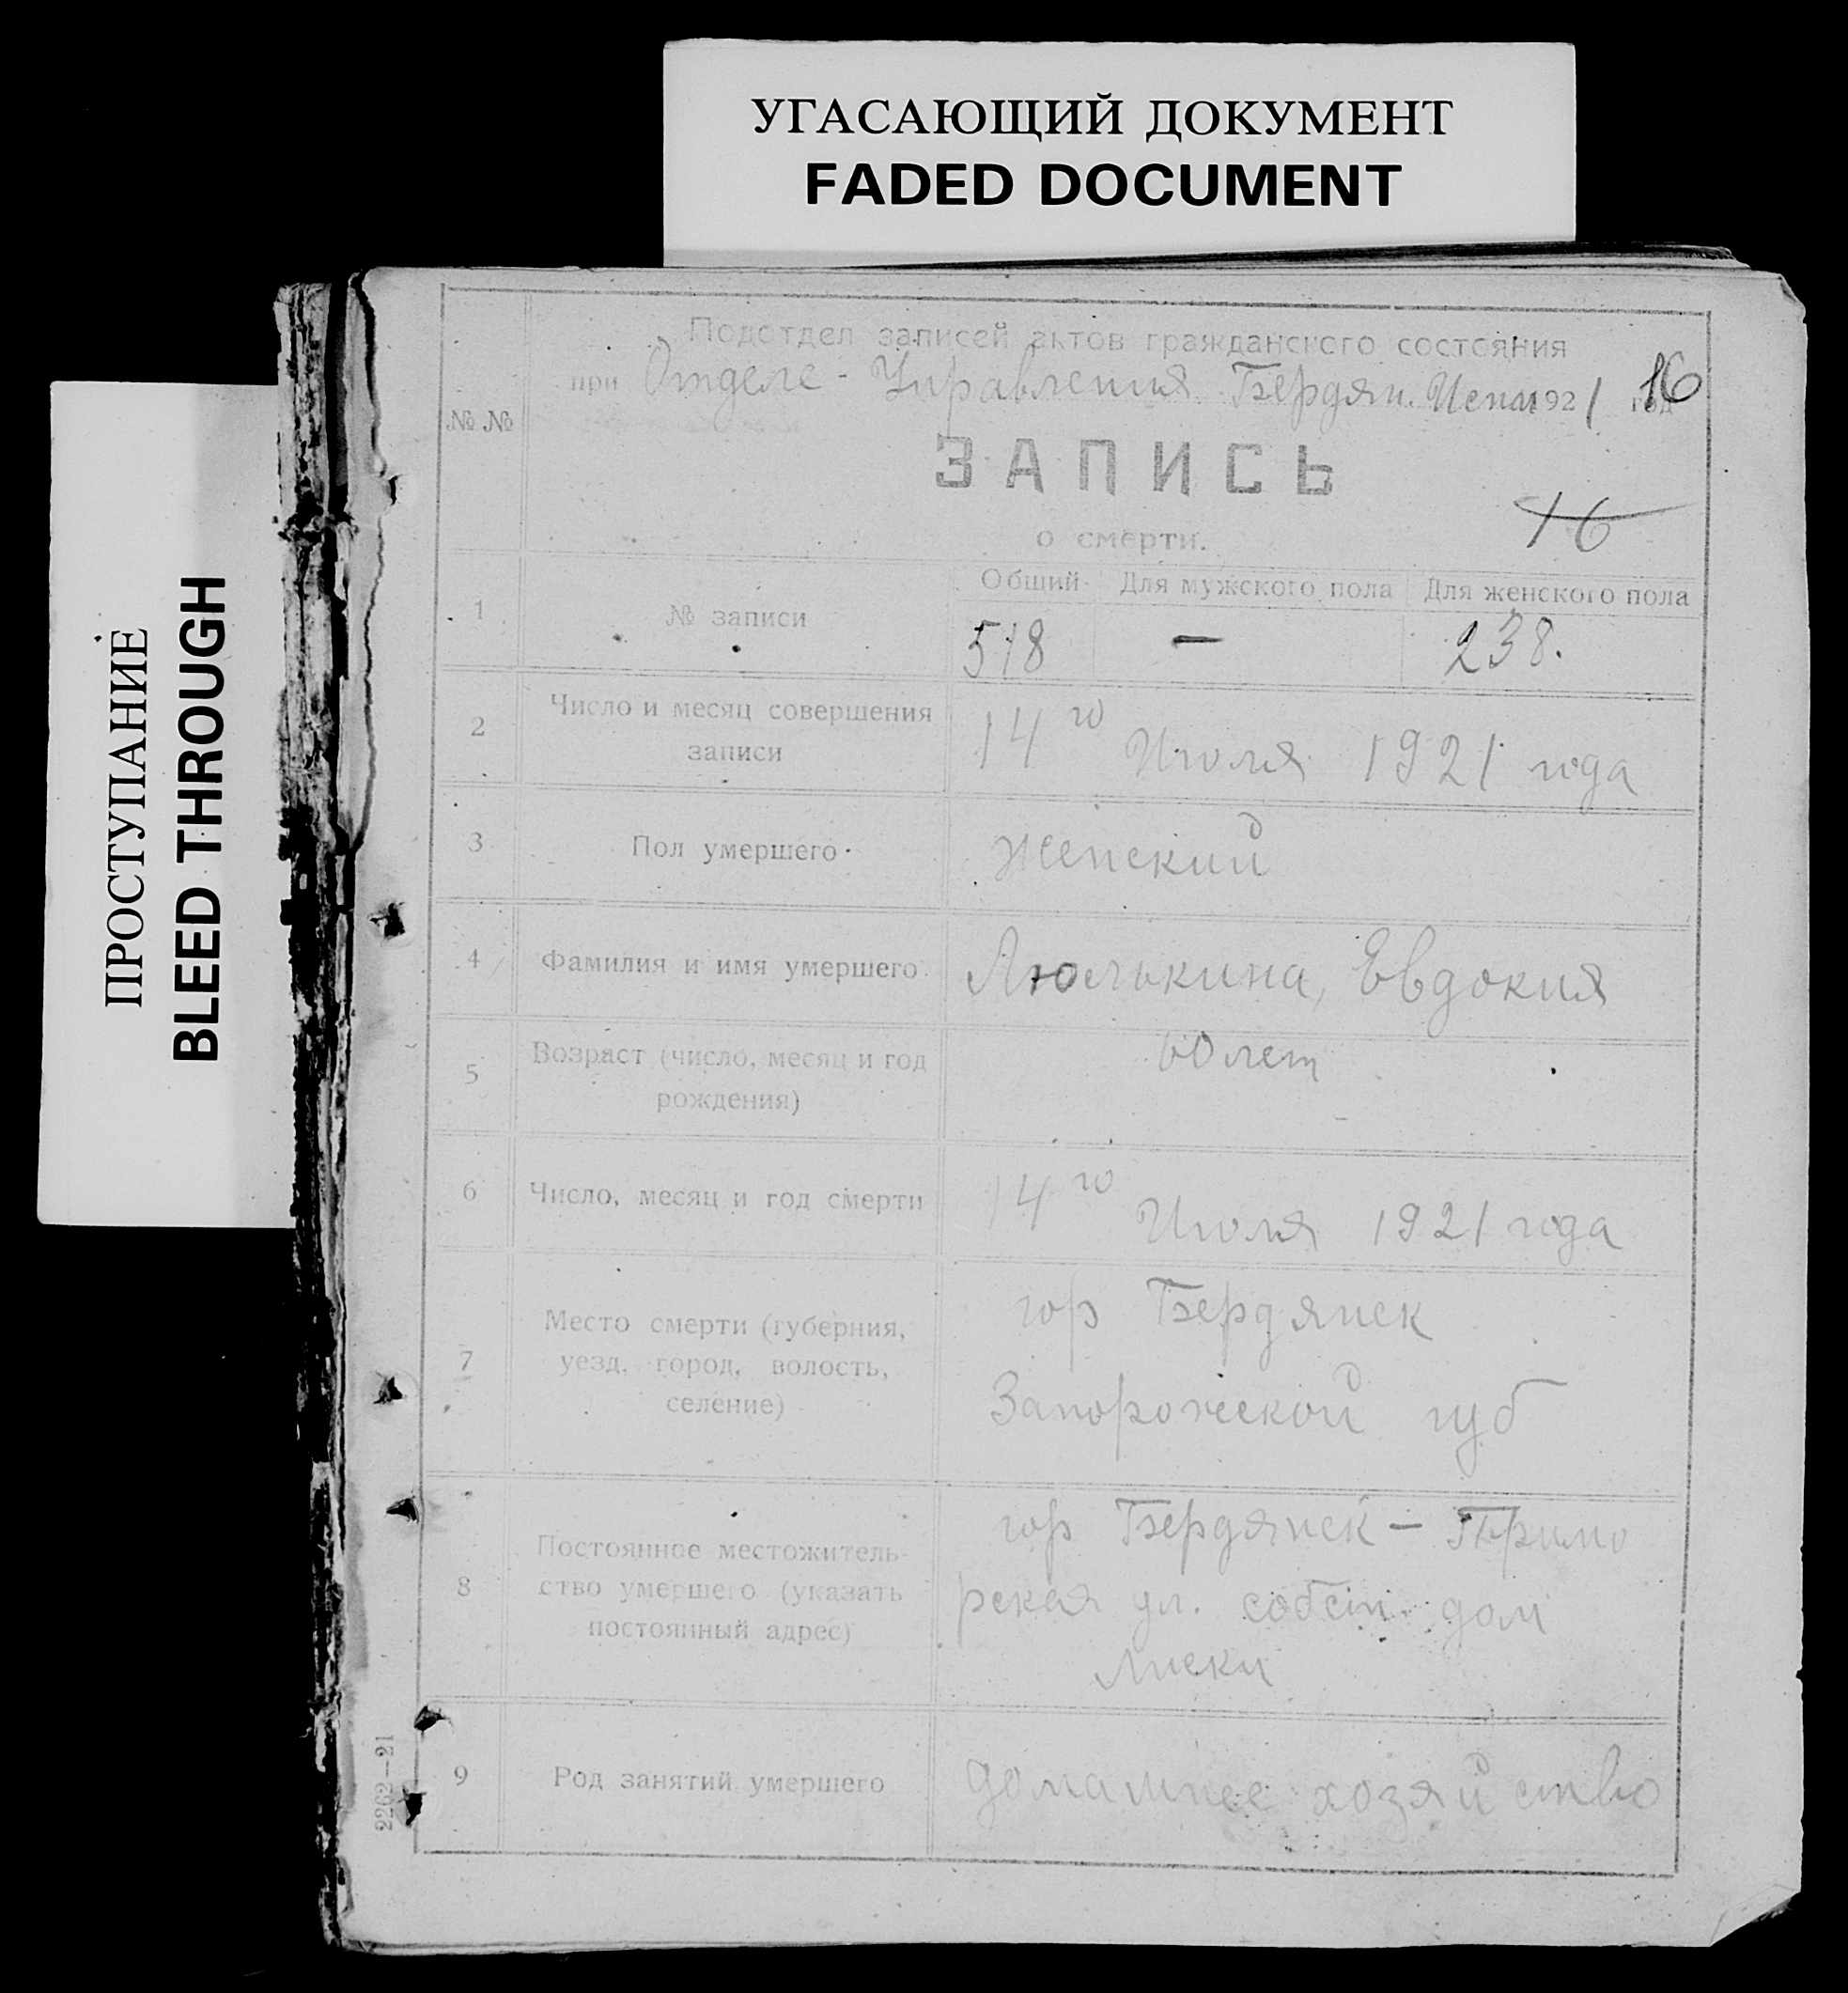 УГАСАЮЩИЙ ДОКУМЕНТ
FADED DOCUMENT
ПРОСТУПАНИЕ
BLEED THROUGH
Подотдел записей актов гражданского состояния
при Отделе-Управления Бердян. Испол 1921 год 16
№ №
ЗАПИСЬ
о смерти.
16
Общий Для мужского пола Для женского пола
1 № записи 518 — 238.
2 Число и месяц совершения
записи
14го Июля 1921 года
3 Пол умершего Женский
4 Фамилия и имя умершего Люлькина, Евдокия
5 Возраст (число, месяц и год
рождения)
60 лет
6 Число, месяц и год смерти 14го Июля 1921 года
7 Место смерти (губерния,
уезд, город, волость,
селение)
гор Бердянск
Запорожской губ
8 Постоянное местожитель-
ство умершего (указать
постоянный адрес)
гор Бердянск — Примо
рская ул. собств дом
Лиски
9 Род занятий умершего домашнее хозяйство
2262—21